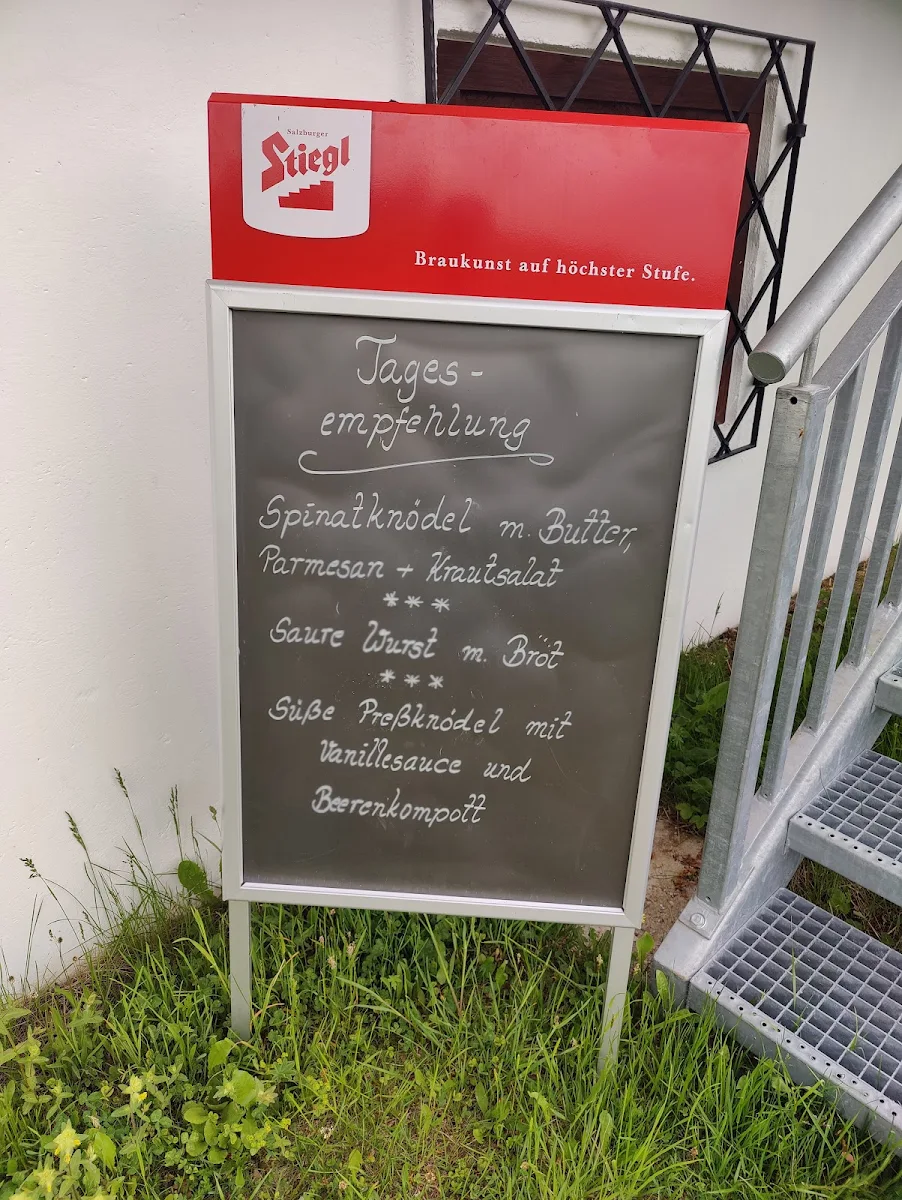 Salzburger
Stiegl
Braukunst auf höchster Stufe.
Tages-
empfehlung
Spinatknödel m. Butter,
Parmesan + Krautsalat
***
Saure Wurst m. Brot
***
Süße Preßknödel mit
Vanillesauce und
Beerenkompott